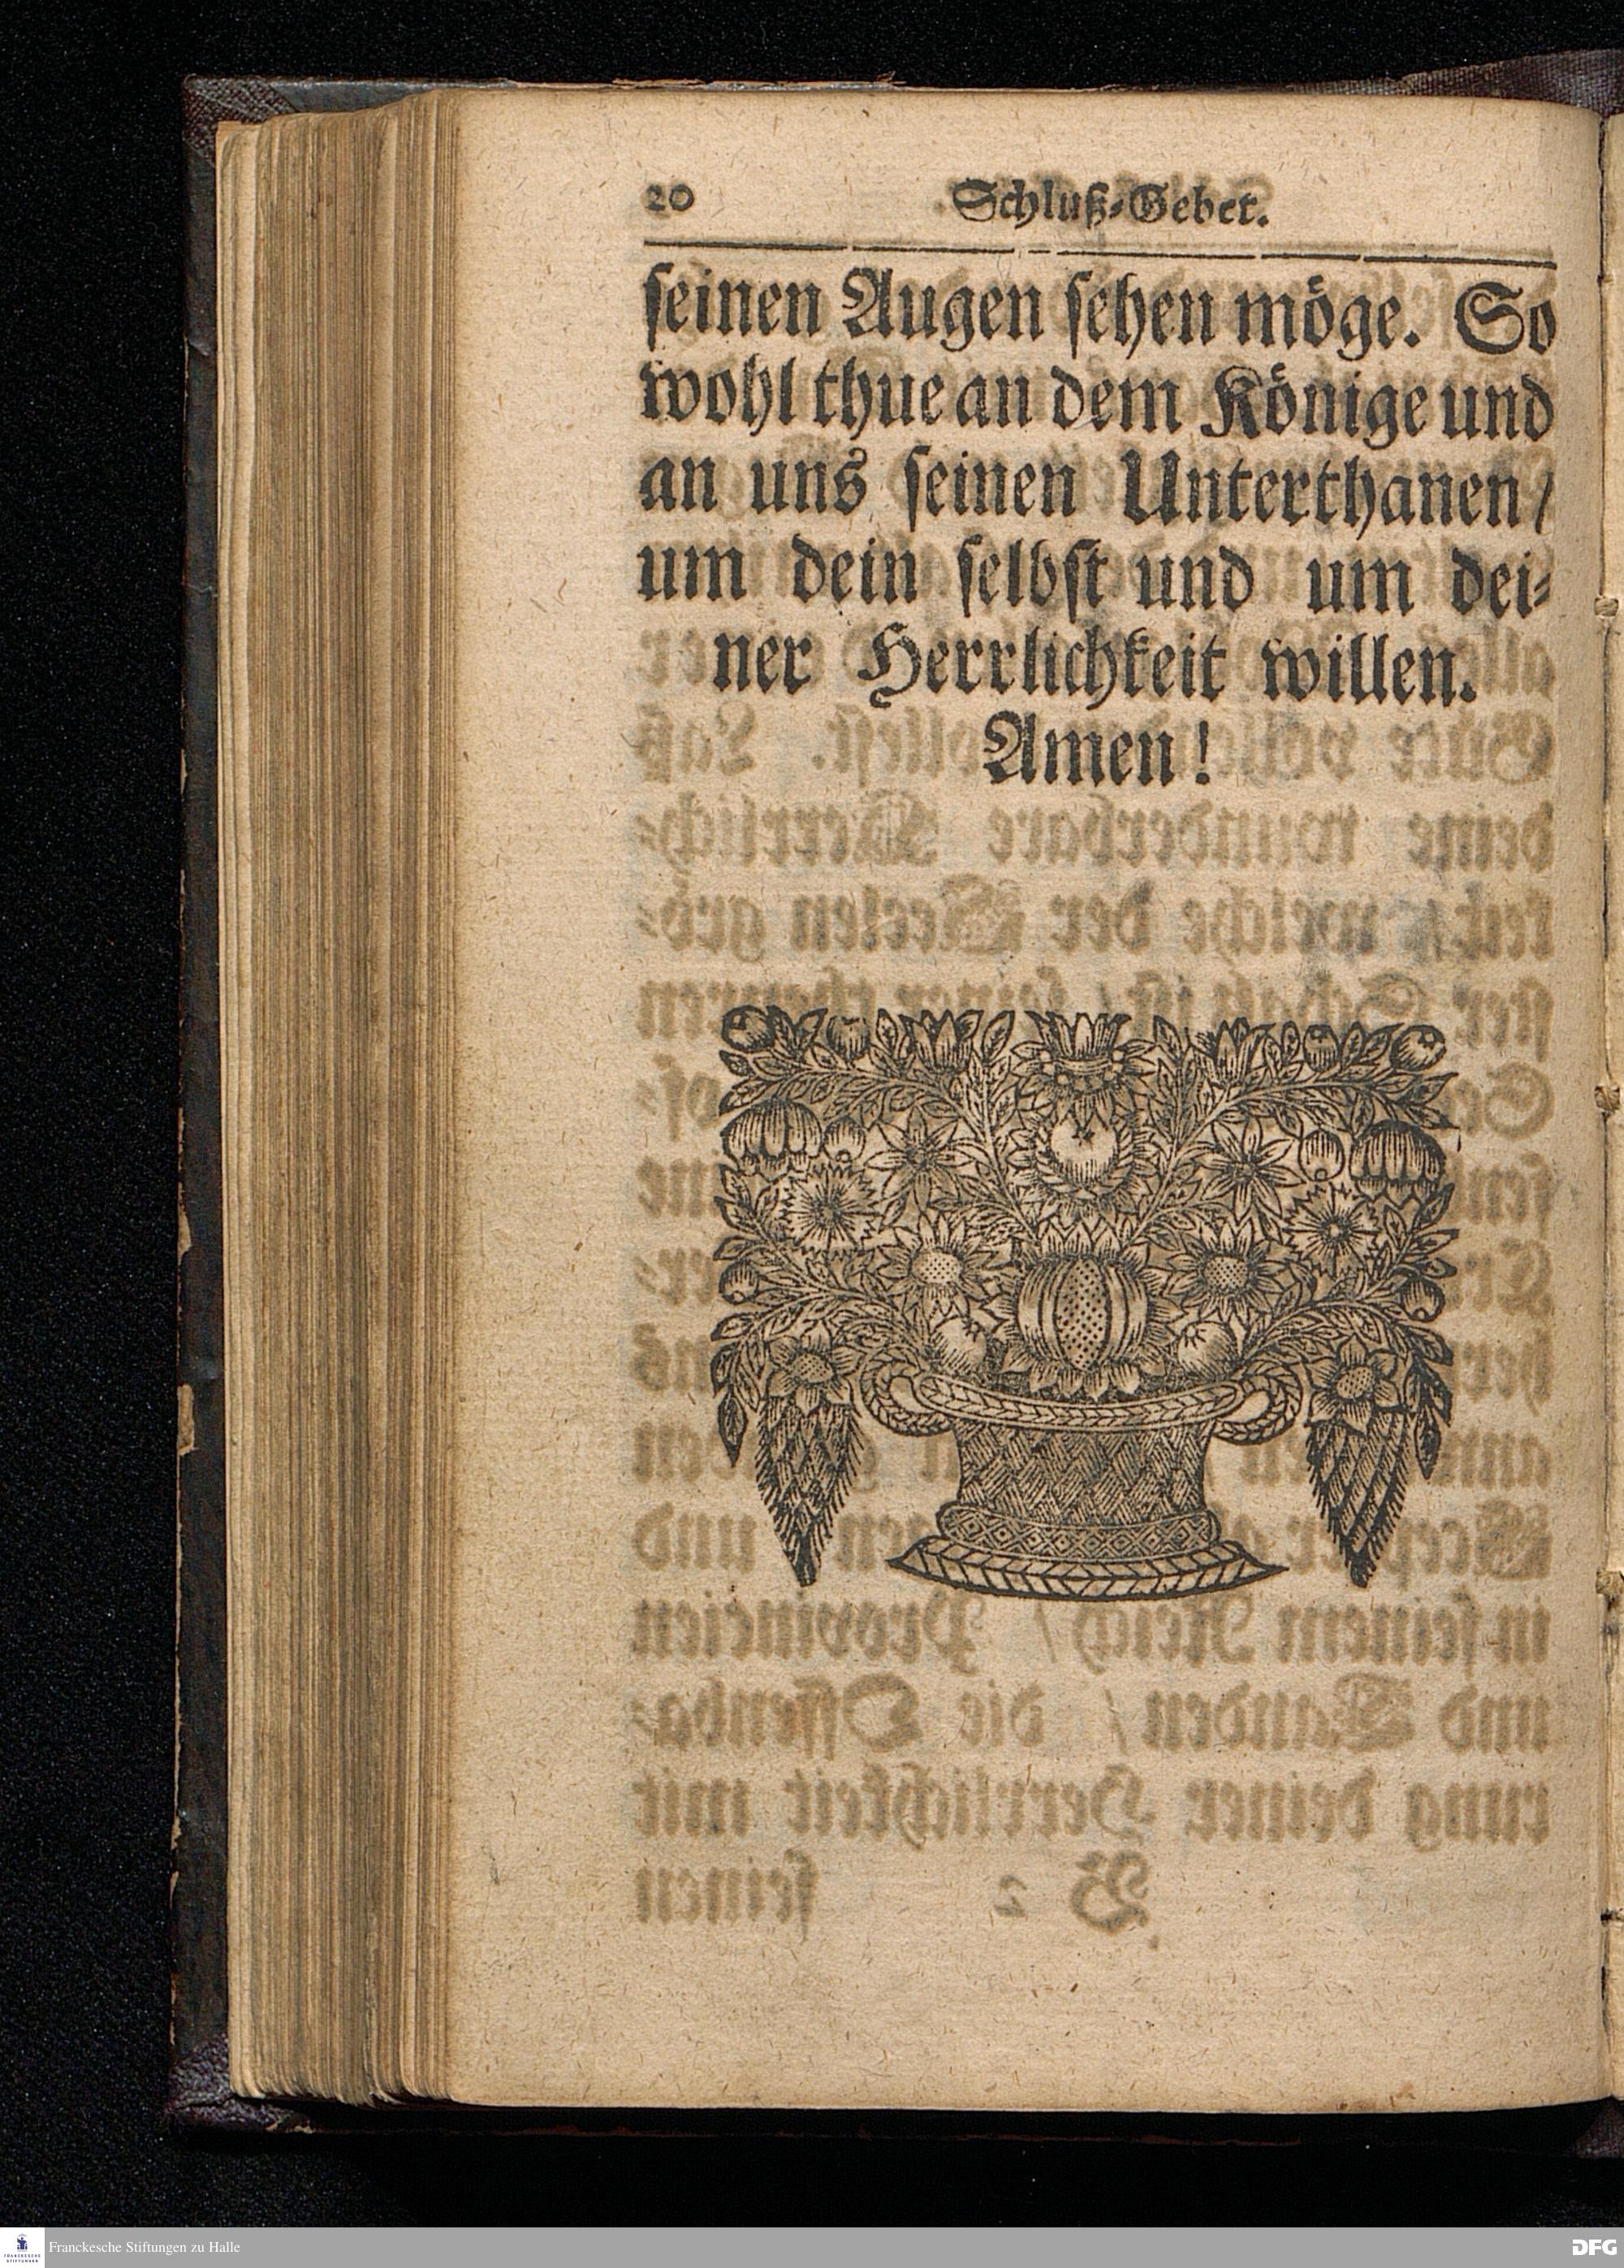 20 Schluß-Gebet.
seinen Augen sehen möge. So
wohl thue an dem Könige und
an uns seinen Unterthanen/
um dein selbst und um dei-
ner Herrlichkeit willen.
Amen!
FRANCKESCHE
STIFTUNGEN
Franckesche Stiftungen zu Halle
DFG